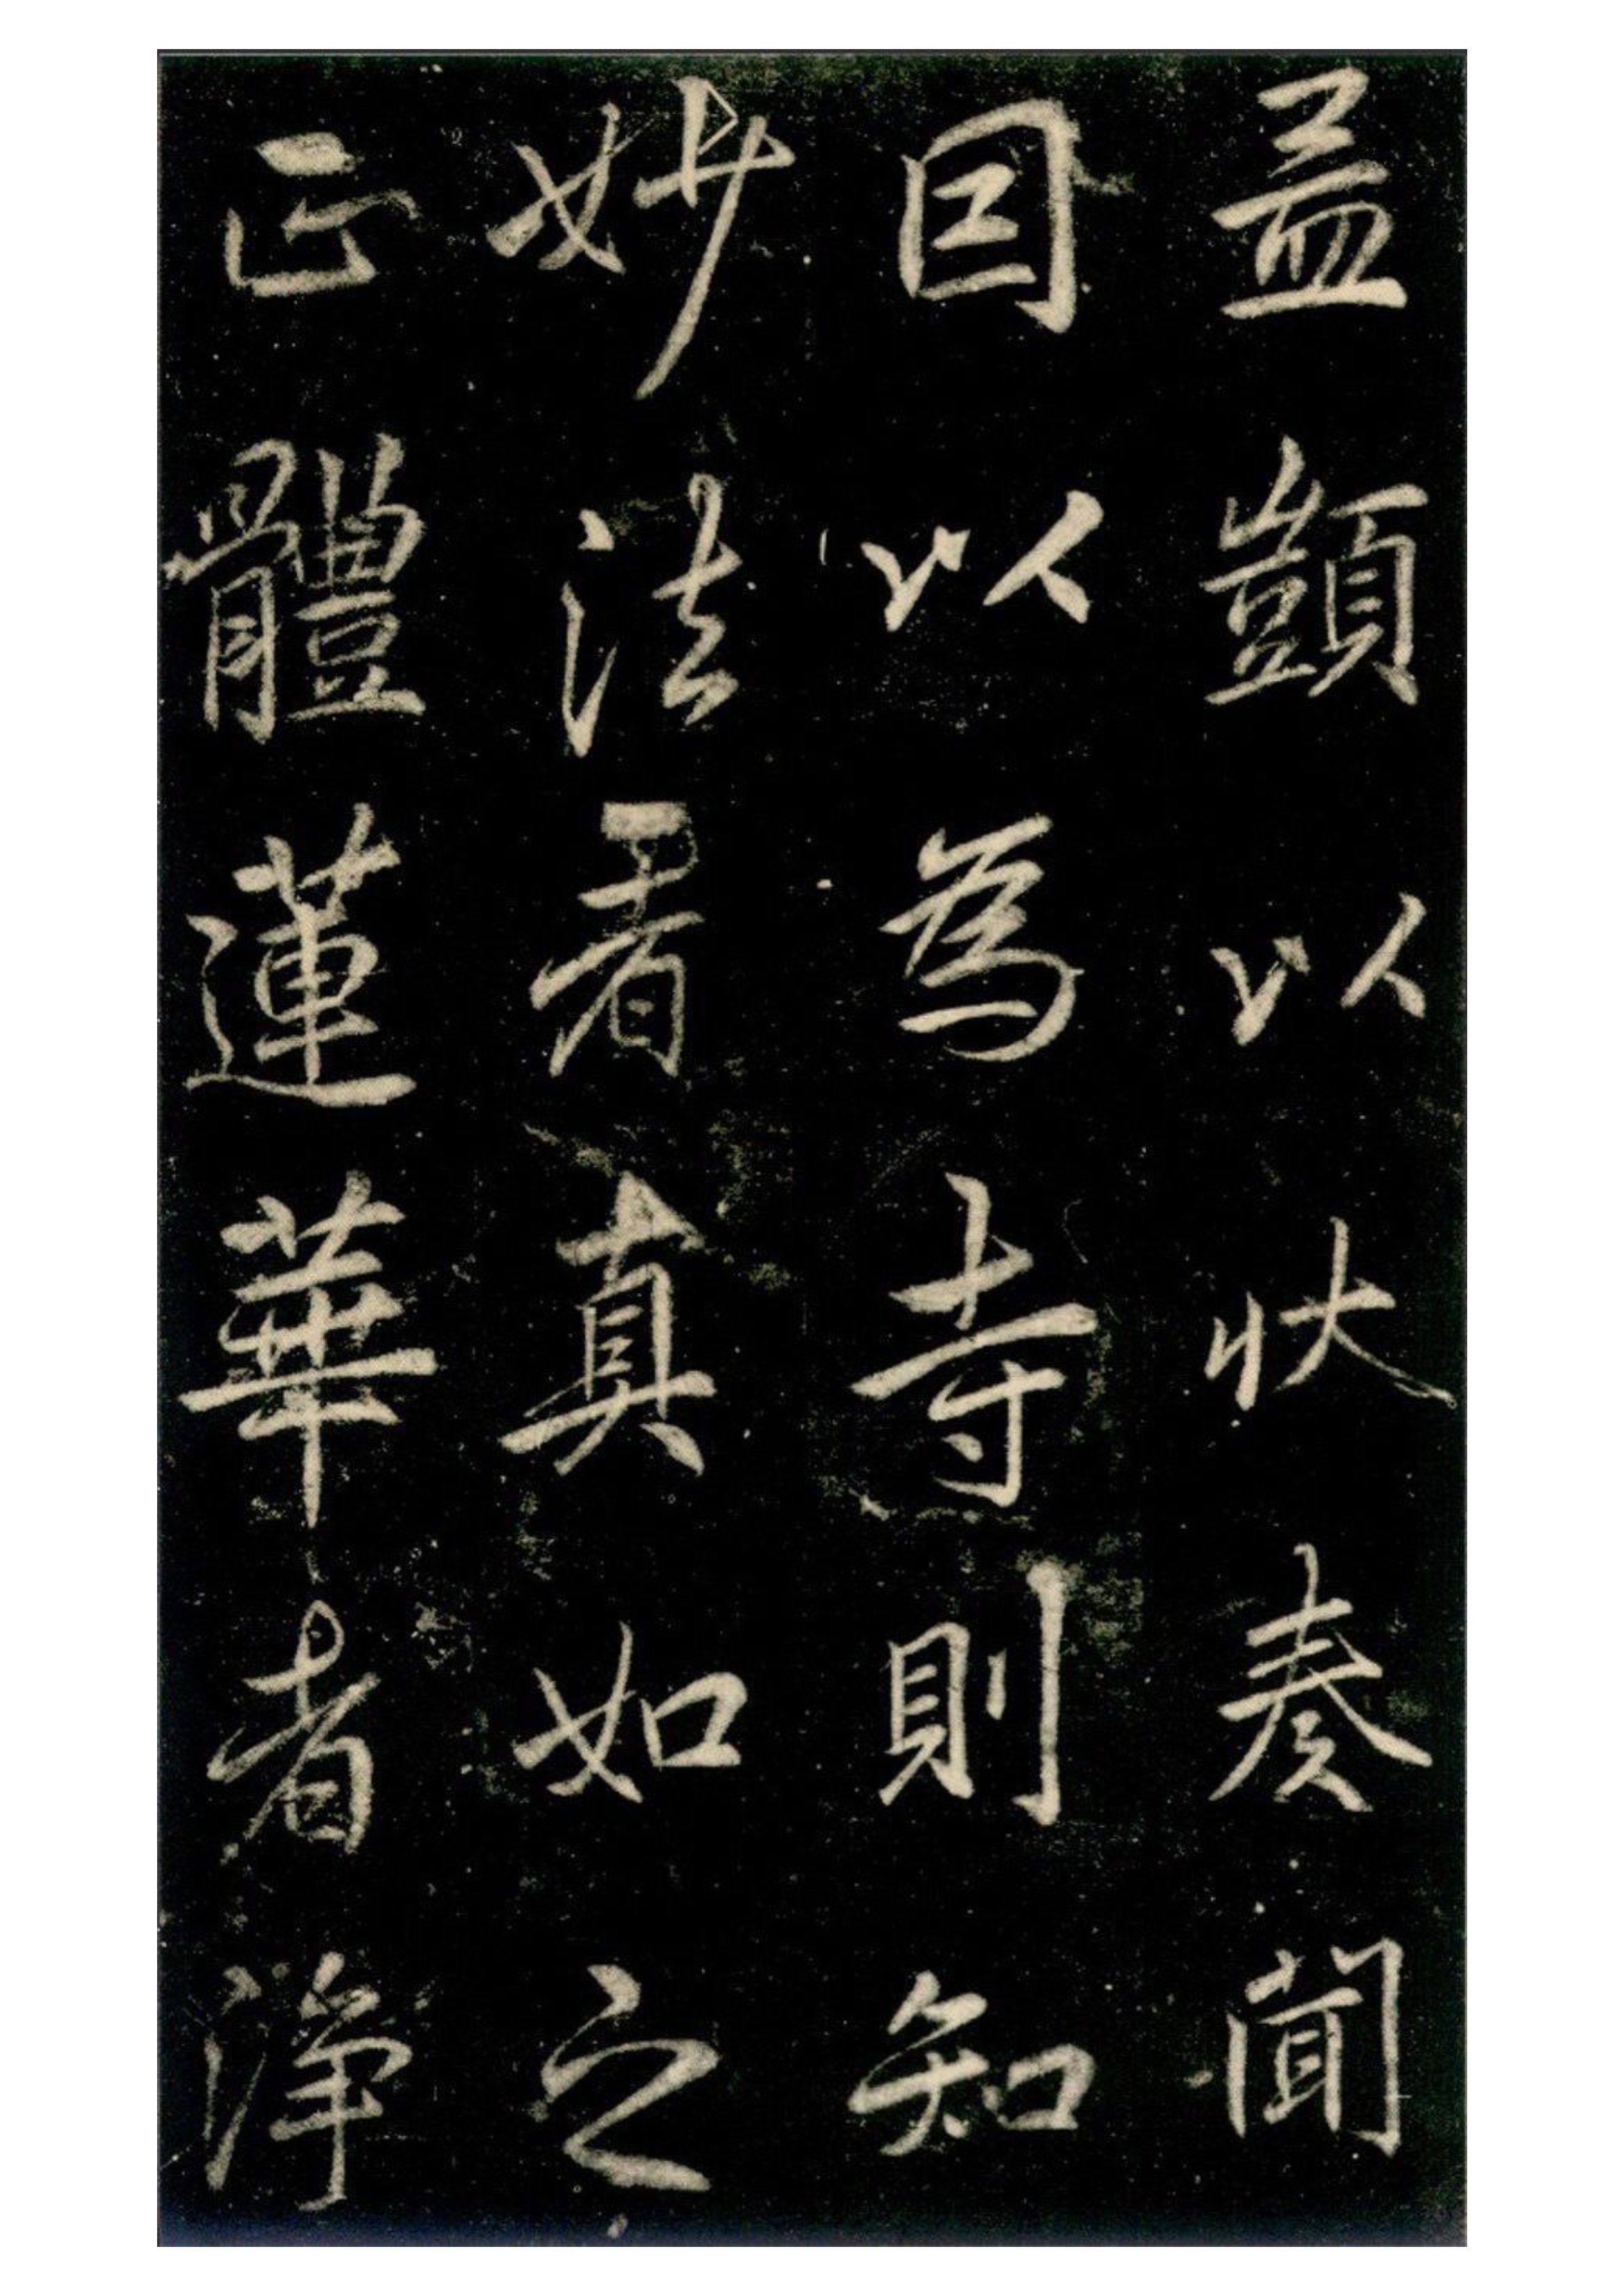 益顗以狀奏聞
因以為寺則知
妙法者真如之
正體蓮華者淨